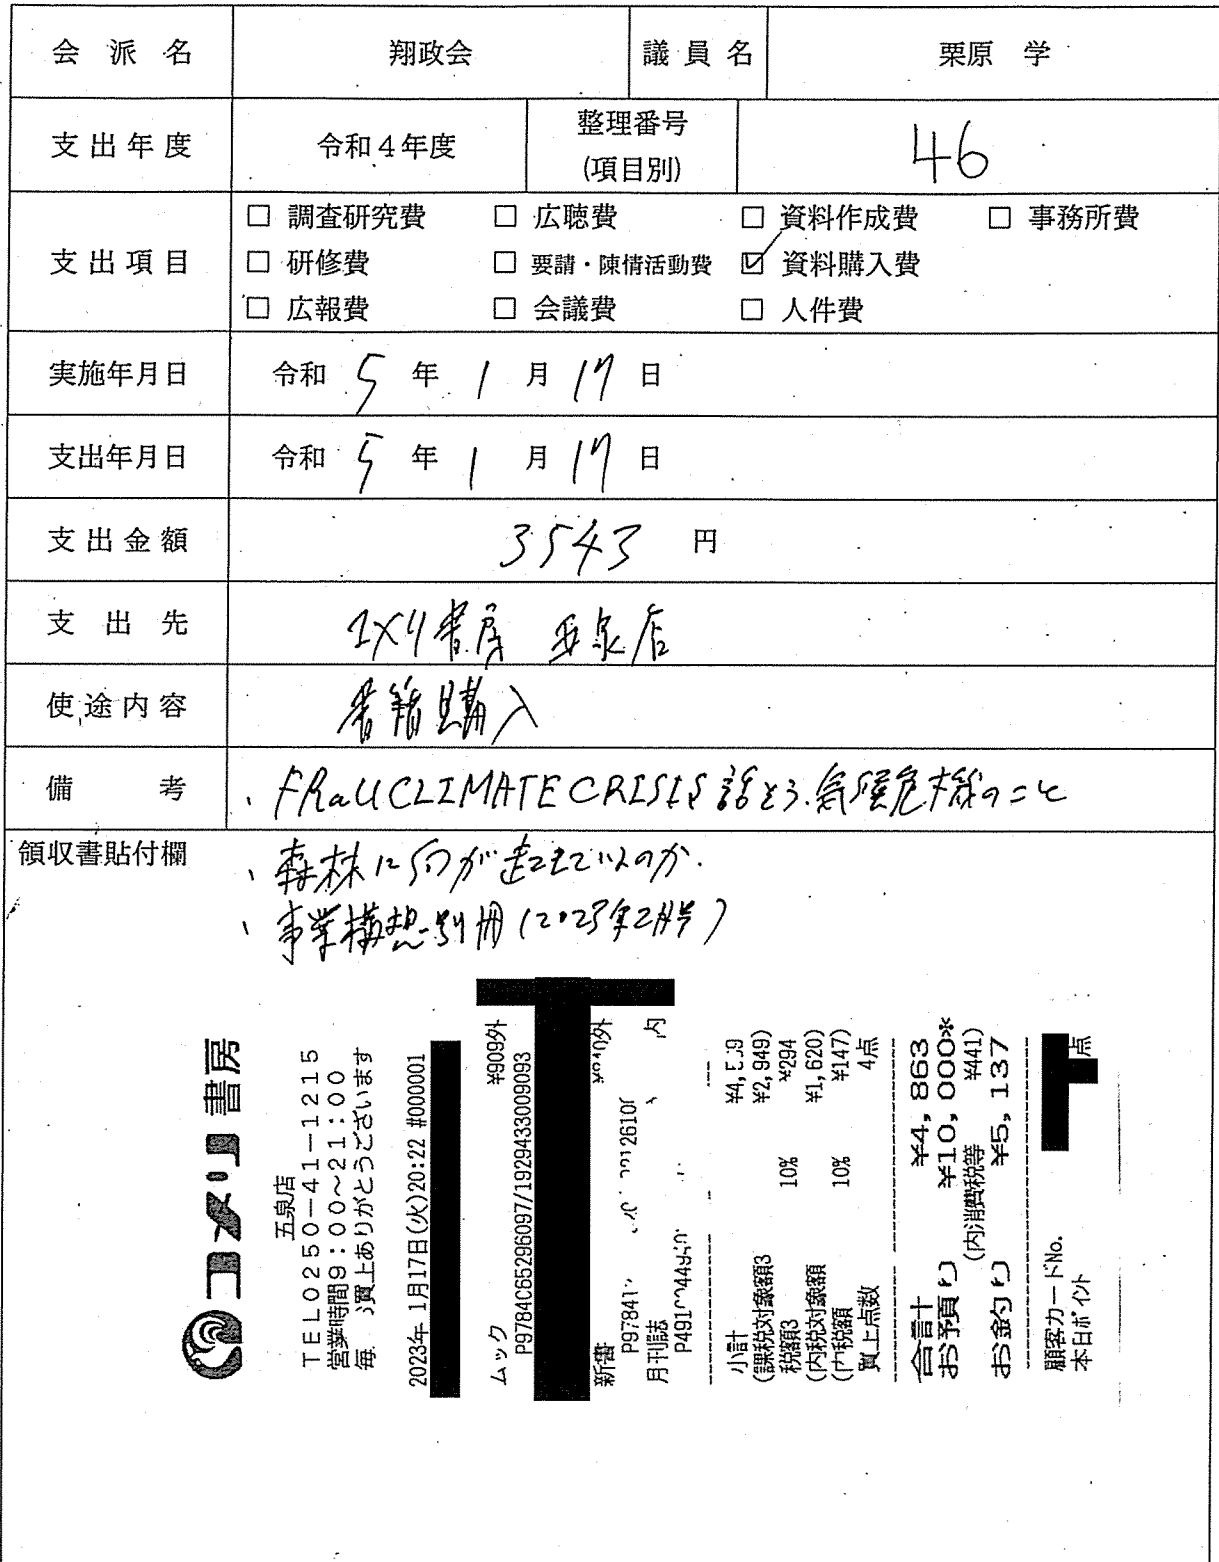 会派名 翔政会 議員名 栗原 学
支出年度 令和4年度 整理番号 (項目別) 46
支出項目
□ 調査研究費 □ 広聴費 □ 資料作成費 □ 事務所費
□ 研修費 □ 要請・陳情活動費 ☑ 資料購入費
□ 広報費 □ 会議費 □ 人件費
実施年月日 令和 5 年 1 月 17 日
支出年月日 令和 5 年 1 月 17 日
支出金額 3543 円
支出先 コメリ書房 五泉店
使途内容 書籍購入
備考 ・FRaU CLIMATE CRISIS 話そう、気候危機のこと
領収書貼付欄
・森林に何が起きているのか.
・事業構想 別冊(2023年2月号)
コメリ書房
五泉店
TEL0250-41-1215
営業時間9:00~21:00
毎 買上ありがとうございます
2023年 1月17日(火)20:22 #000001
ムック ¥909外
P9784065296097/1929433009093
新書 外
月刊誌 内
小計
(課税対象額3 ¥2,949)
税額3 10% ¥294
(内税対象額 ¥1,620)
(内税額 10% ¥147)
買上点数 4点
合計 ¥4,863
お預り ¥10,000*
(内消費税等 ¥441)
お釣り ¥5,137
顧客カードNo.
本日ポイント 点